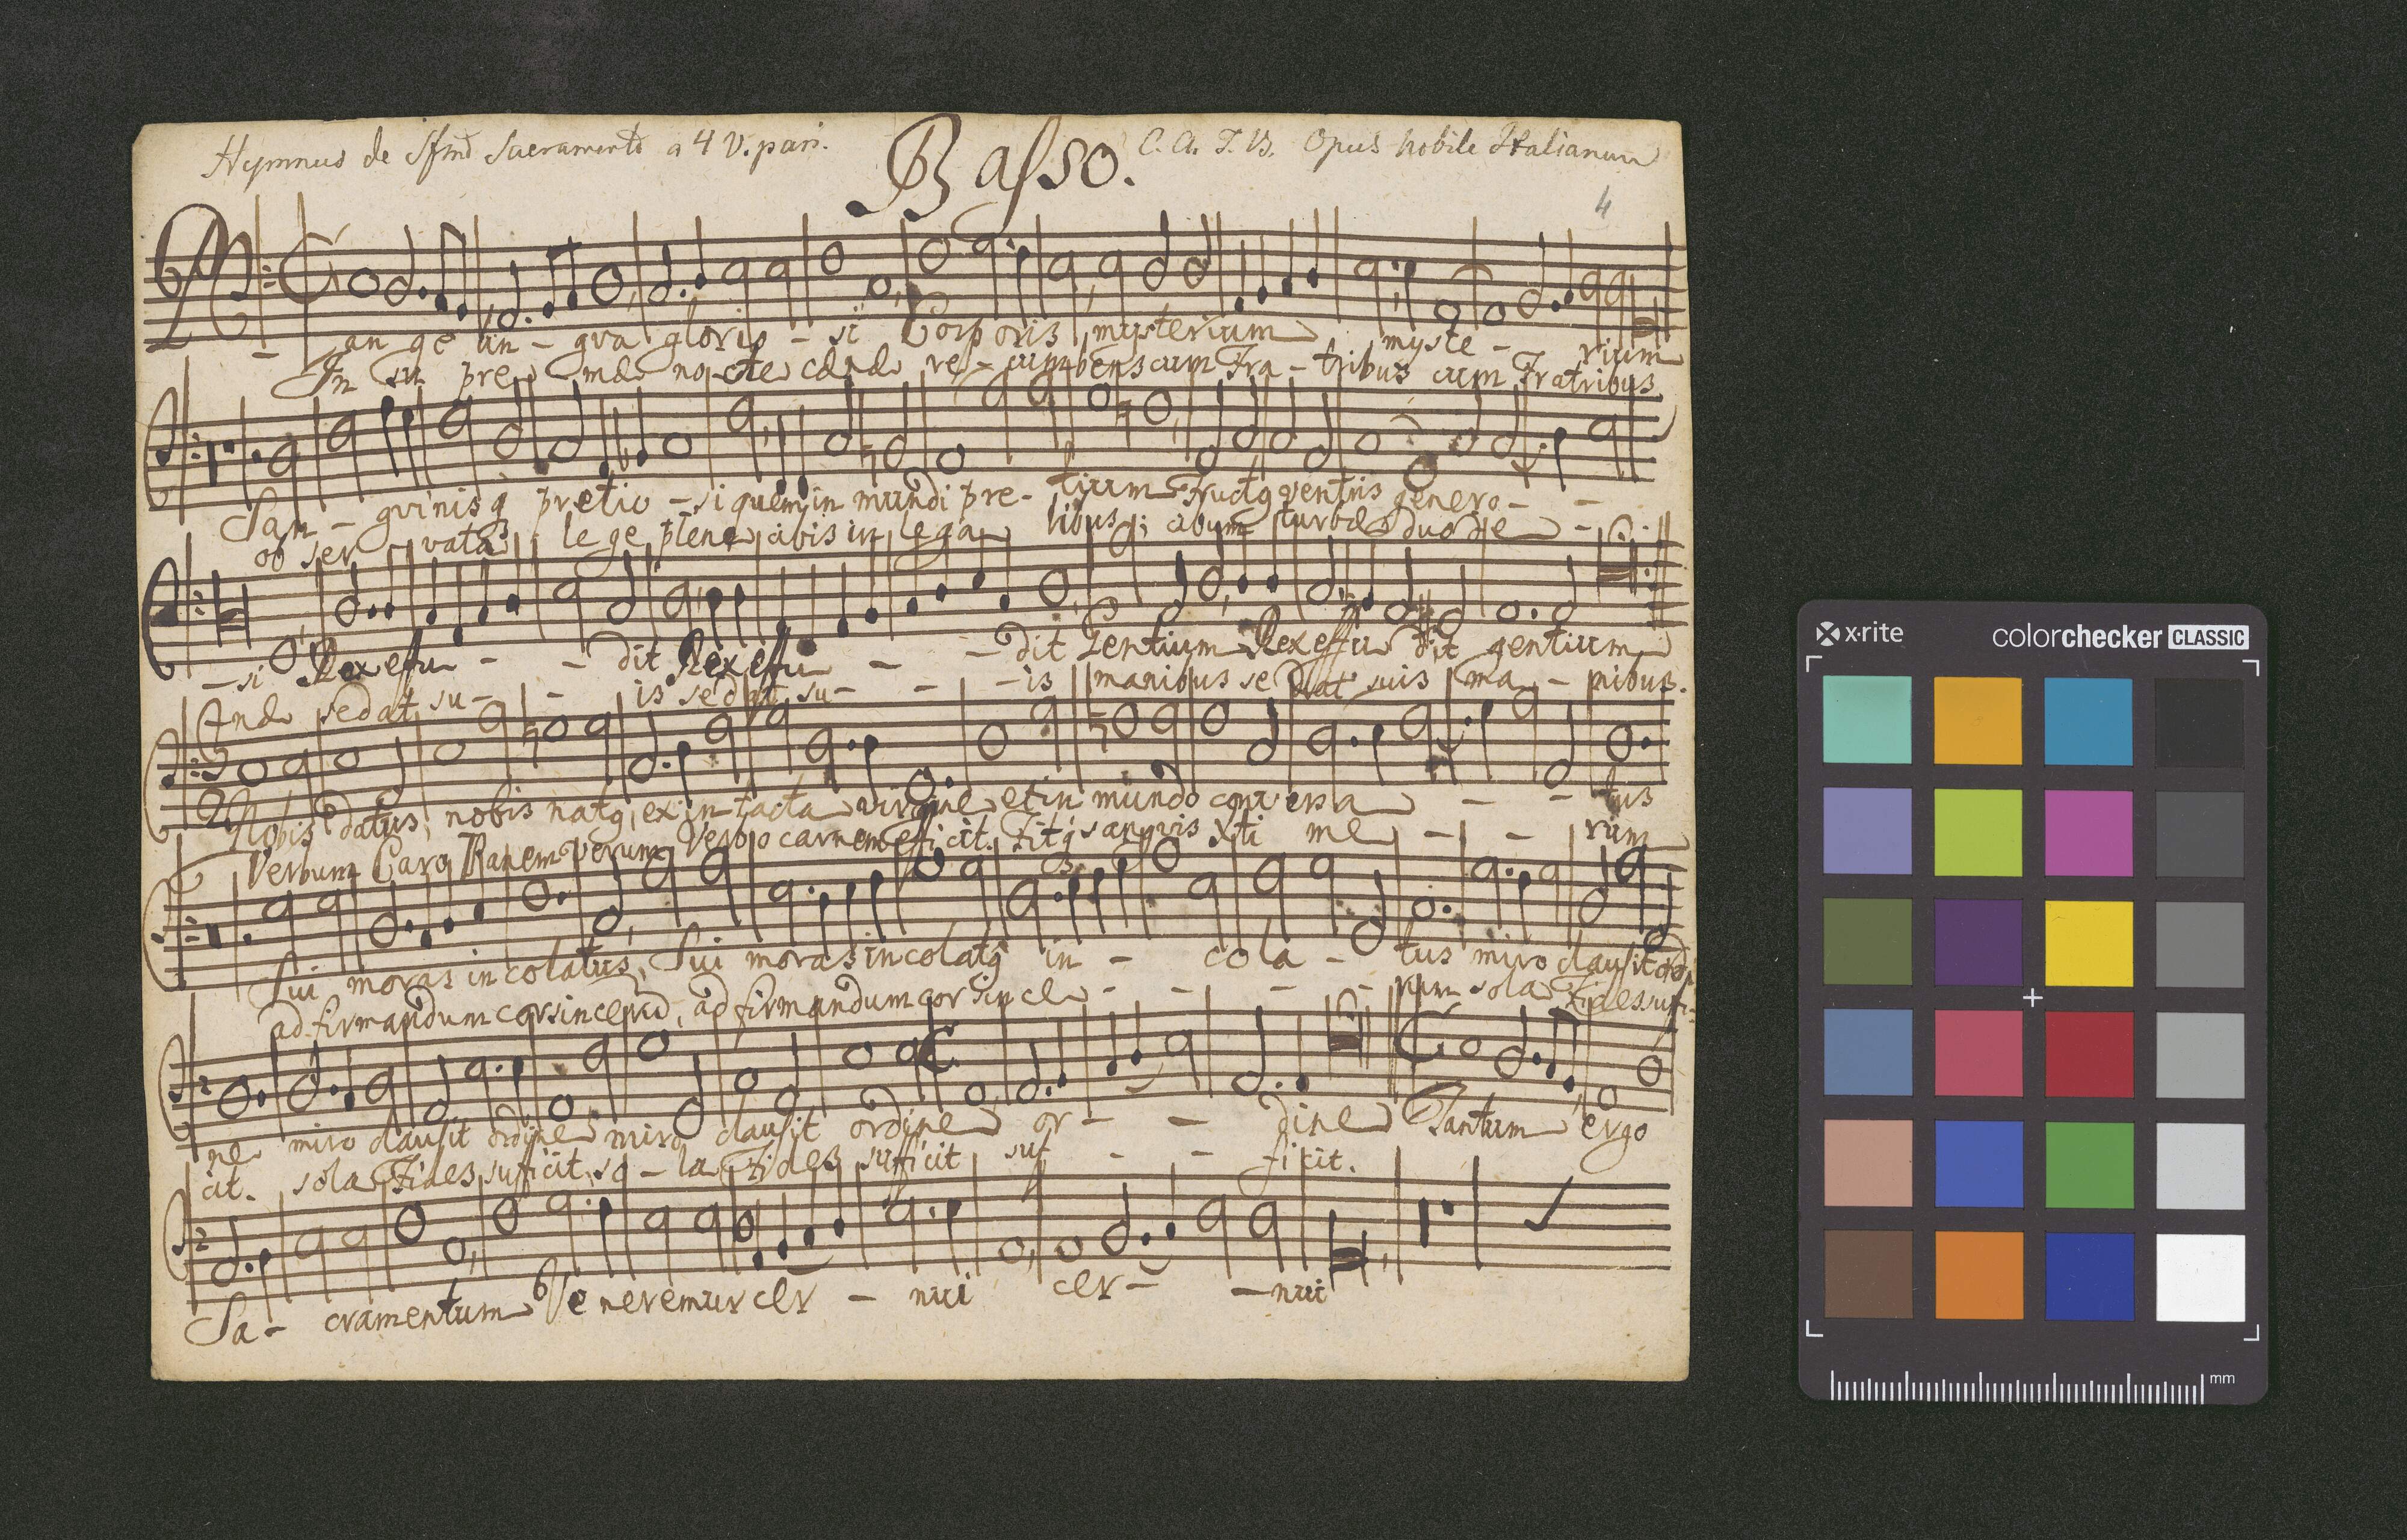 Hymnus de Ssmo Sacramento a 4 V. pari. Basso. C. A. T. B. Opus nobile Italianum
4
Pange lin - gva glorio - si Corporis mysterium myste - rium
In su premæ nocte cænæ re - cumbens cum Fra - tribus cum Fratribus
San - gvinisq pretio - si quem in mundi pre - tium Fructq ventris genero - -
ob ser - vata lege plene cibis in lega libus; cibum turbæ duode -
- si Rex effu - - dit Rex effu - - dit Gentium Rex effu dit gentium
Andæ se dat su - - is se dat su - - - is manibus se dat suis ma - nibus.
Nobis datus, nobis natq, ex intacta virgine et in mundo conversa - - tus
Verbum Caro Panem verum Verbo carnem efficit. Fitq sangvis Xti me - - rum
Sui moras incolatus, Sui moras incolatq in - cola - tus miro clausit ordi
ad firmandum cor sincerum, ad firmandum cor sin ce - - - - rum sola Fides suffi-
ne miro clausit ordine miro clausit ordine or - - dine Tantum ergo
cit. sola Fides sufficit so - la Fides sufficit suf - - ficit.
Sa - cramentum Veneremur cer - nui cer - - nui
x·rite colorchecker CLASSIC
mm